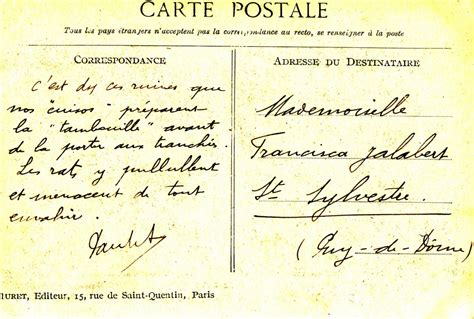 CARTE POSTALE
Tous les pays étrangers n'acceptent pas la correspondance au recto, se renseigner à la poste
CORRESPONDANCE
C'est ds ces ruines que
nos "cuisos" préparent
la "tambouille" avant
de la porter aux tranchées.
Les rats y pullullent
et menacent de tout
envahir.
ADRESSE DU DESTINATAIRE
Mademoiselle
Francisca Jalabert
St Sylvestre
(Puy-de-Dôme)
MURET, Editeur, 15, rue de Saint-Quentin, Paris